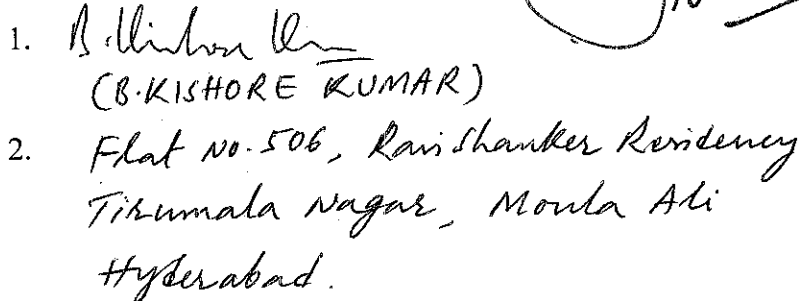 1. B. Kishore Kumar
(B.KISHORE KUMAR)
2. Flat No. 506, Ravishanker Residency
Tirumala Nagar, Moula Ali
Hyderabad.